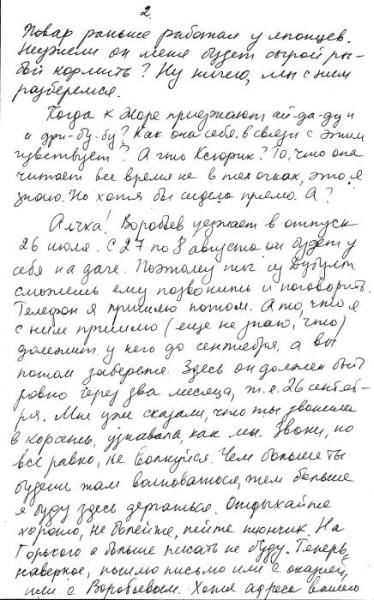 2.
Повар раньше работал у японцев.
Неужели он меня будет сырой ры-
бой кормить? Ну ничего, мы с ним
разберемся.
Когда к Жоре приезжают ай-да-ду и
и дри-бу-бу? Как она себя в связи с этим
чувствует? А что Ксюрик? То, что она
читает все время не в тех очках, это я
знаю. Но хотя бы сидела прямо. А?
Алчка! Воробьев уезжает в отпуск
26 июля. С 27 по 8 августа он будет у
себя на даче. Поэтому ты из Дубулт
сможешь ему позвонить и поговорить.
Телефон я пришлю потом. А то, что я
с ним пришлю (еще не знаю, что)
полежит у него до сентября, а вы
потом заберете. Здесь он должен быть
ровно через два месяца, т.е. 26 сентяб-
ря. Мне уже сказали, что ты звонила
в корсеть, узнавала, как мы. Звони, но
все равно, не волнуйся. Чем больше ты
будешь там волноваться, тем больше
я буду здесь держаться. Отдыхайте
хорошо, не болейте, пейте пюнчик. На
Горького я больше писать не буду. Теперь,
наверное, пошлю письмо или с оказией,
или с Воробьевым. Хотя адреса вашего